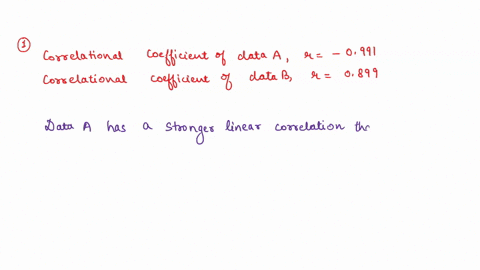 ① Correlational Coefficient of data A, r = - 0.991
Correlational coefficient of data B, r = 0.899
Data A has a stronger linear correlation th